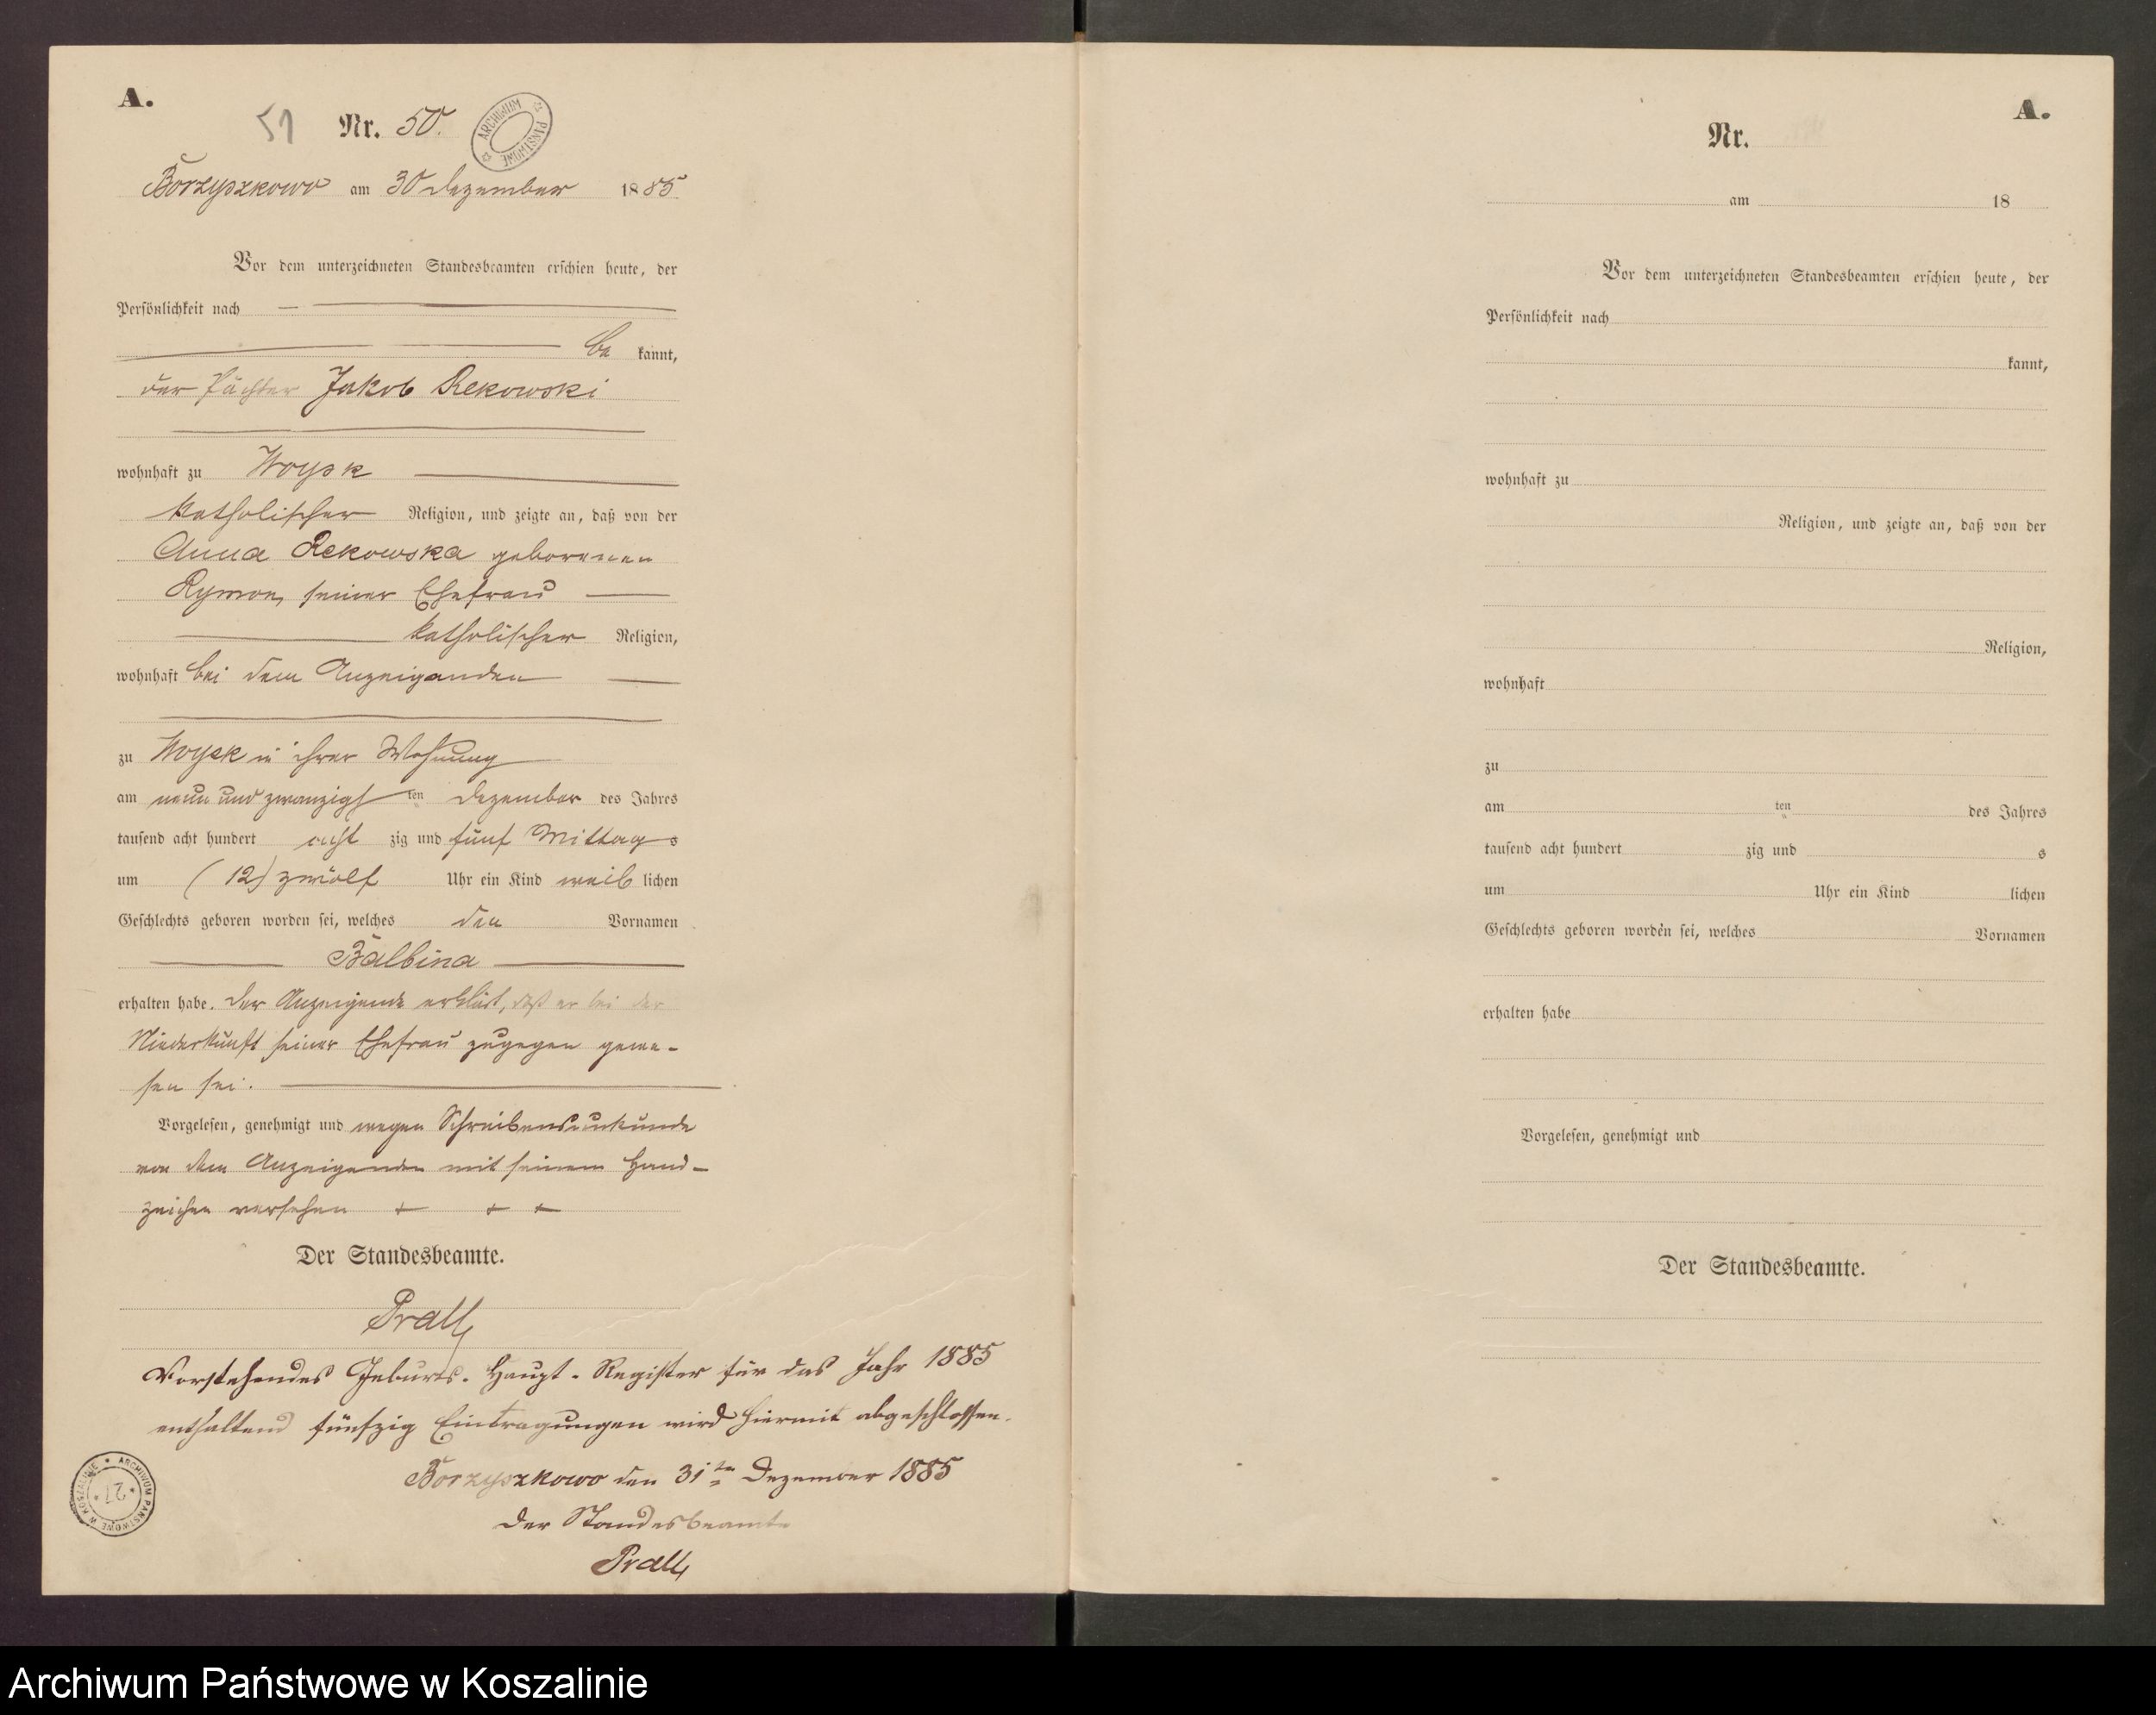 A.
51 Nr. 50.
ARCHIWUM PAŃSTWOWE
Borzyszkowo am 30 Dezember 1885
Vor dem unterzeichneten Standesbeamten erschien heute, der
Persönlichkeit nach
be kannt,
der Pächter Jakob Rekowski
wohnhaft zu Woysk
katholischer Religion, und zeigte an, daß von der
Anna Rekowska geborenen
Rymon, seiner Ehefrau
katholischer Religion,
wohnhaft bei dem Anzeigenden
zu Woysk in ihrer Wohnung
am neun und zwanzigsten Dezember des Jahres
tausend acht hundert acht zig und fünf Mittags
um (12) zwölf Uhr ein Kind weib lichen
Geschlechts geboren worden sei, welches den Vornamen
Balbina
erhalten habe. Der Anzeigende erklärt, daß er bei der
Niederkunft seiner Ehefrau zugegen gewe-
sen sei.
Vorgelesen, genehmigt und wegen Schreibensunkunde
von dem Anzeigenden mit seinem Hand-
zeichen versehen + + +
Der Standesbeamte.
Prall
Vorstehendes Geburts-Haupt-Register für das Jahr 1885
enthaltend fünfzig Eintragungen wird hiermit abgeschlossen.
Borzyszkowo den 31ten Dezember 1885
Der Standesbeamte
Prall
ARCHIWUM PAŃSTWOWE W KOSZALINIE
27
A.
Nr.
am 18
Vor dem unterzeichneten Standesbeamten erschien heute, der
Persönlichkeit nach
kannt,
wohnhaft zu
Religion, und zeigte an, daß von der
Religion,
wohnhaft
zu
am ten des Jahres
tausend acht hundert zig und s
um Uhr ein Kind lichen
Geschlechts geboren worden sei, welches Vornamen
erhalten habe
Vorgelesen, genehmigt und
Der Standesbeamte.
Archiwum Państwowe w Koszalinie